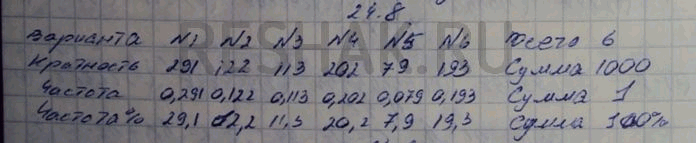 24.8
Варианта №1 №2 №3 №4 №5 №6 Всего 6
Кратность 291 122 113 202 79 193 Сумма 1000
Частота 0,291 0,122 0,113 0,202 0,079 0,193 Сумма 1
Частота% 29,1 12,2 11,3 20,2 7,9 19,3 Сумма 100%